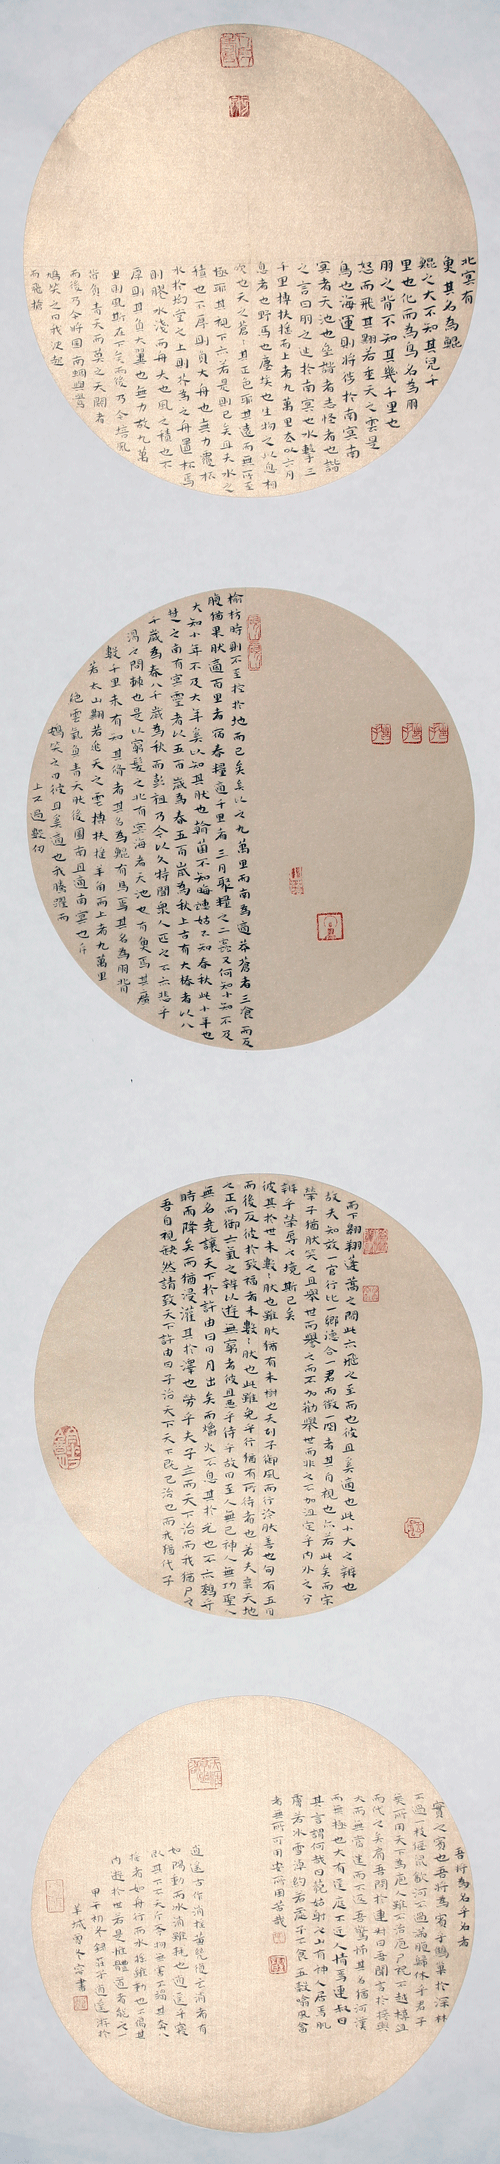 北冥有
魚其名為鯤
鯤之大不知其幾千
里也化而為鳥名為朋
朋之背不知其幾千里也
怒而飛其翼若垂天之雲是
鳥也海運則將徙於南冥南
冥者天池也齊諧者志怪者也諧
之言曰朋之徙於南冥也水擊三
千里摶扶搖而上者九萬里去以六月
息者也野馬也塵埃也生物之以息相
吹也天之蒼々其正色耶其遠而無所至
極耶其視下六若是則已矣且夫水之
積也不厚則負大舟也無力覆杯
水於坳堂之上則芥為之舟置杯焉
則膠水淺而舟大也風之積也不
厚則其負大翼也無力故九萬
里則風斯在下矣而後乃今培風
背負青天而莫之夭閼者
而後乃今將圖南蜩與鷽
鳩笑之曰我決起
而飛搶
榆枋時則不至控於地而已矣奚以之九萬里而南為適莽蒼者三飡而反
腹猶果肰適百里者宿舂糧適千里者三月聚糧之二蟲又何知小知不及
大知小年不及大年奚以知其肰也朝菌不知晦蟪蛄不知春秋此小年也
楚之南有冥靈者以五百歲為春五百歲為秋上古有大椿者以八
千歲為春八千歲為秋而彭祖乃今以久特聞眾人匹之不六悲乎
湯之問棘也是以窮髮之北有冥海者天池也有魚焉其廣
數千里未有知其脩者其名為鯤有鳥焉其名為朋背
若太山翼若垂天之雲摶扶搖羊角而上者九萬里
絕雲氣負青天肰後圖南且適南冥也斥
鴳笑之曰彼且奚適也我騰躍而
上不過數仞
而下翱翔蓬蒿之間此六飛之至而也彼且奚適也此小大之辨也
故夫知效一官行比一鄉德合一君而徵一國者其自視也六若此矣而宋
榮子猶肰笑之且舉世而譽之而不加勸舉世而非之不加沮定乎內外之分
辨乎榮辱之境斯已矣
彼其於世未數々肰也雖肰猶有未樹也夫列子御風而行泠肰善也旬有五日
而後反彼於致福者未數々肰也此雖免乎行猶有所待者也若夫乘天地
之正而御六氣之辨以遊無窮者彼且惡乎待乎故曰至人無己神人無功聖人
無名堯讓天下於許由曰日月出矣而爝火不息其於光也不六難乎
時雨降矣而猶浸灌其於澤也勞乎夫子立而天下治而我猶尸之
吾自視缺然請致天下許由曰子治天下天下既已治也而我猶代子
吾將為名乎名者
實之賓也吾將為賓乎鷦鷯巢於深林
不過一枝偃鼠飲河不過滿腹歸休乎君予
無所用天下為庖人雖不治庖尸祝不越樽俎
而代之矣肩吾問於連叔曰吾聞言於接輿
大而無當往而不返吾驚怖其言猶河漢
而無極也大有逕庭不近人情焉連叔曰
其言謂何哉曰藐姑射之山有神人居焉肌
膚若冰雪淖約若處子不食五穀吸風飲
者無所可用安所困苦哉